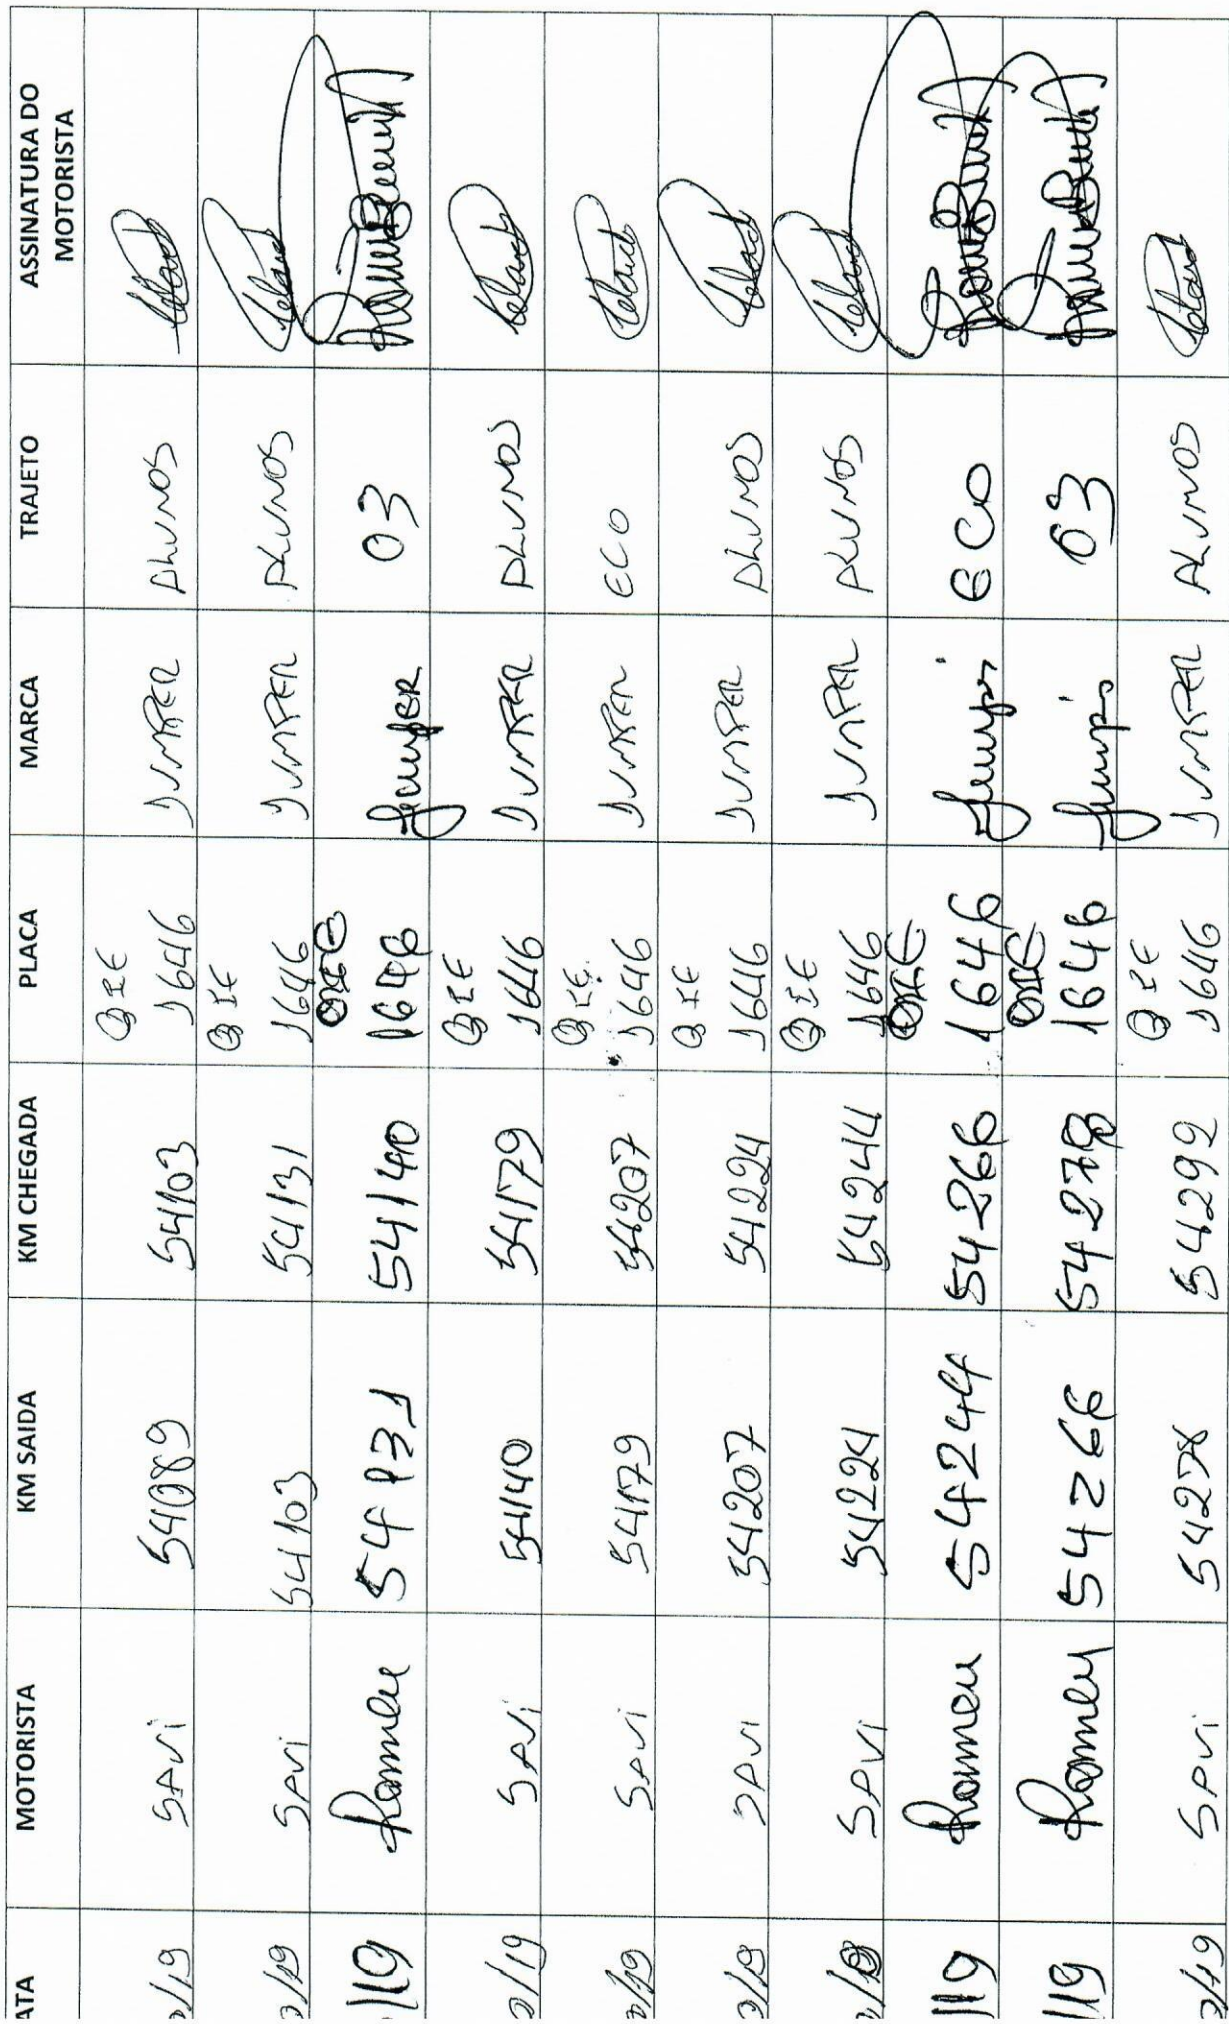 ATA MOTORISTA KM SAIDA KM CHEGADA PLACA MARCA TRAJETO ASSINATURA DO MOTORISTA
0/19 SAVI 54089 54103 QIE 1646 JUMPER ALUNOS
0/19 SAVI 54103 54131 QIE 1646 JUMPER ALUNOS
/119 Romeu 54131 54140 QIE 1646 JumpER 03
0/19 SAVI 54140 54179 QIE 1646 JUMPER ALUNOS
0/19 SAVI 54179 54207 QIE 1646 JUMPER ECO
0/19 SAVI 54207 54224 QIE 1646 JUMPER ALUNOS
0/19 SAVI 54224 54244 QIE 1646 JUMPER ALUNOS
119 Romeu 54244 54266 QIE 1646 ECO
119 Romeu 54266 54278 QIE 1646 03
0/19 SAVI 54278 54292 QIE 1646 JUMPER ALUNOS